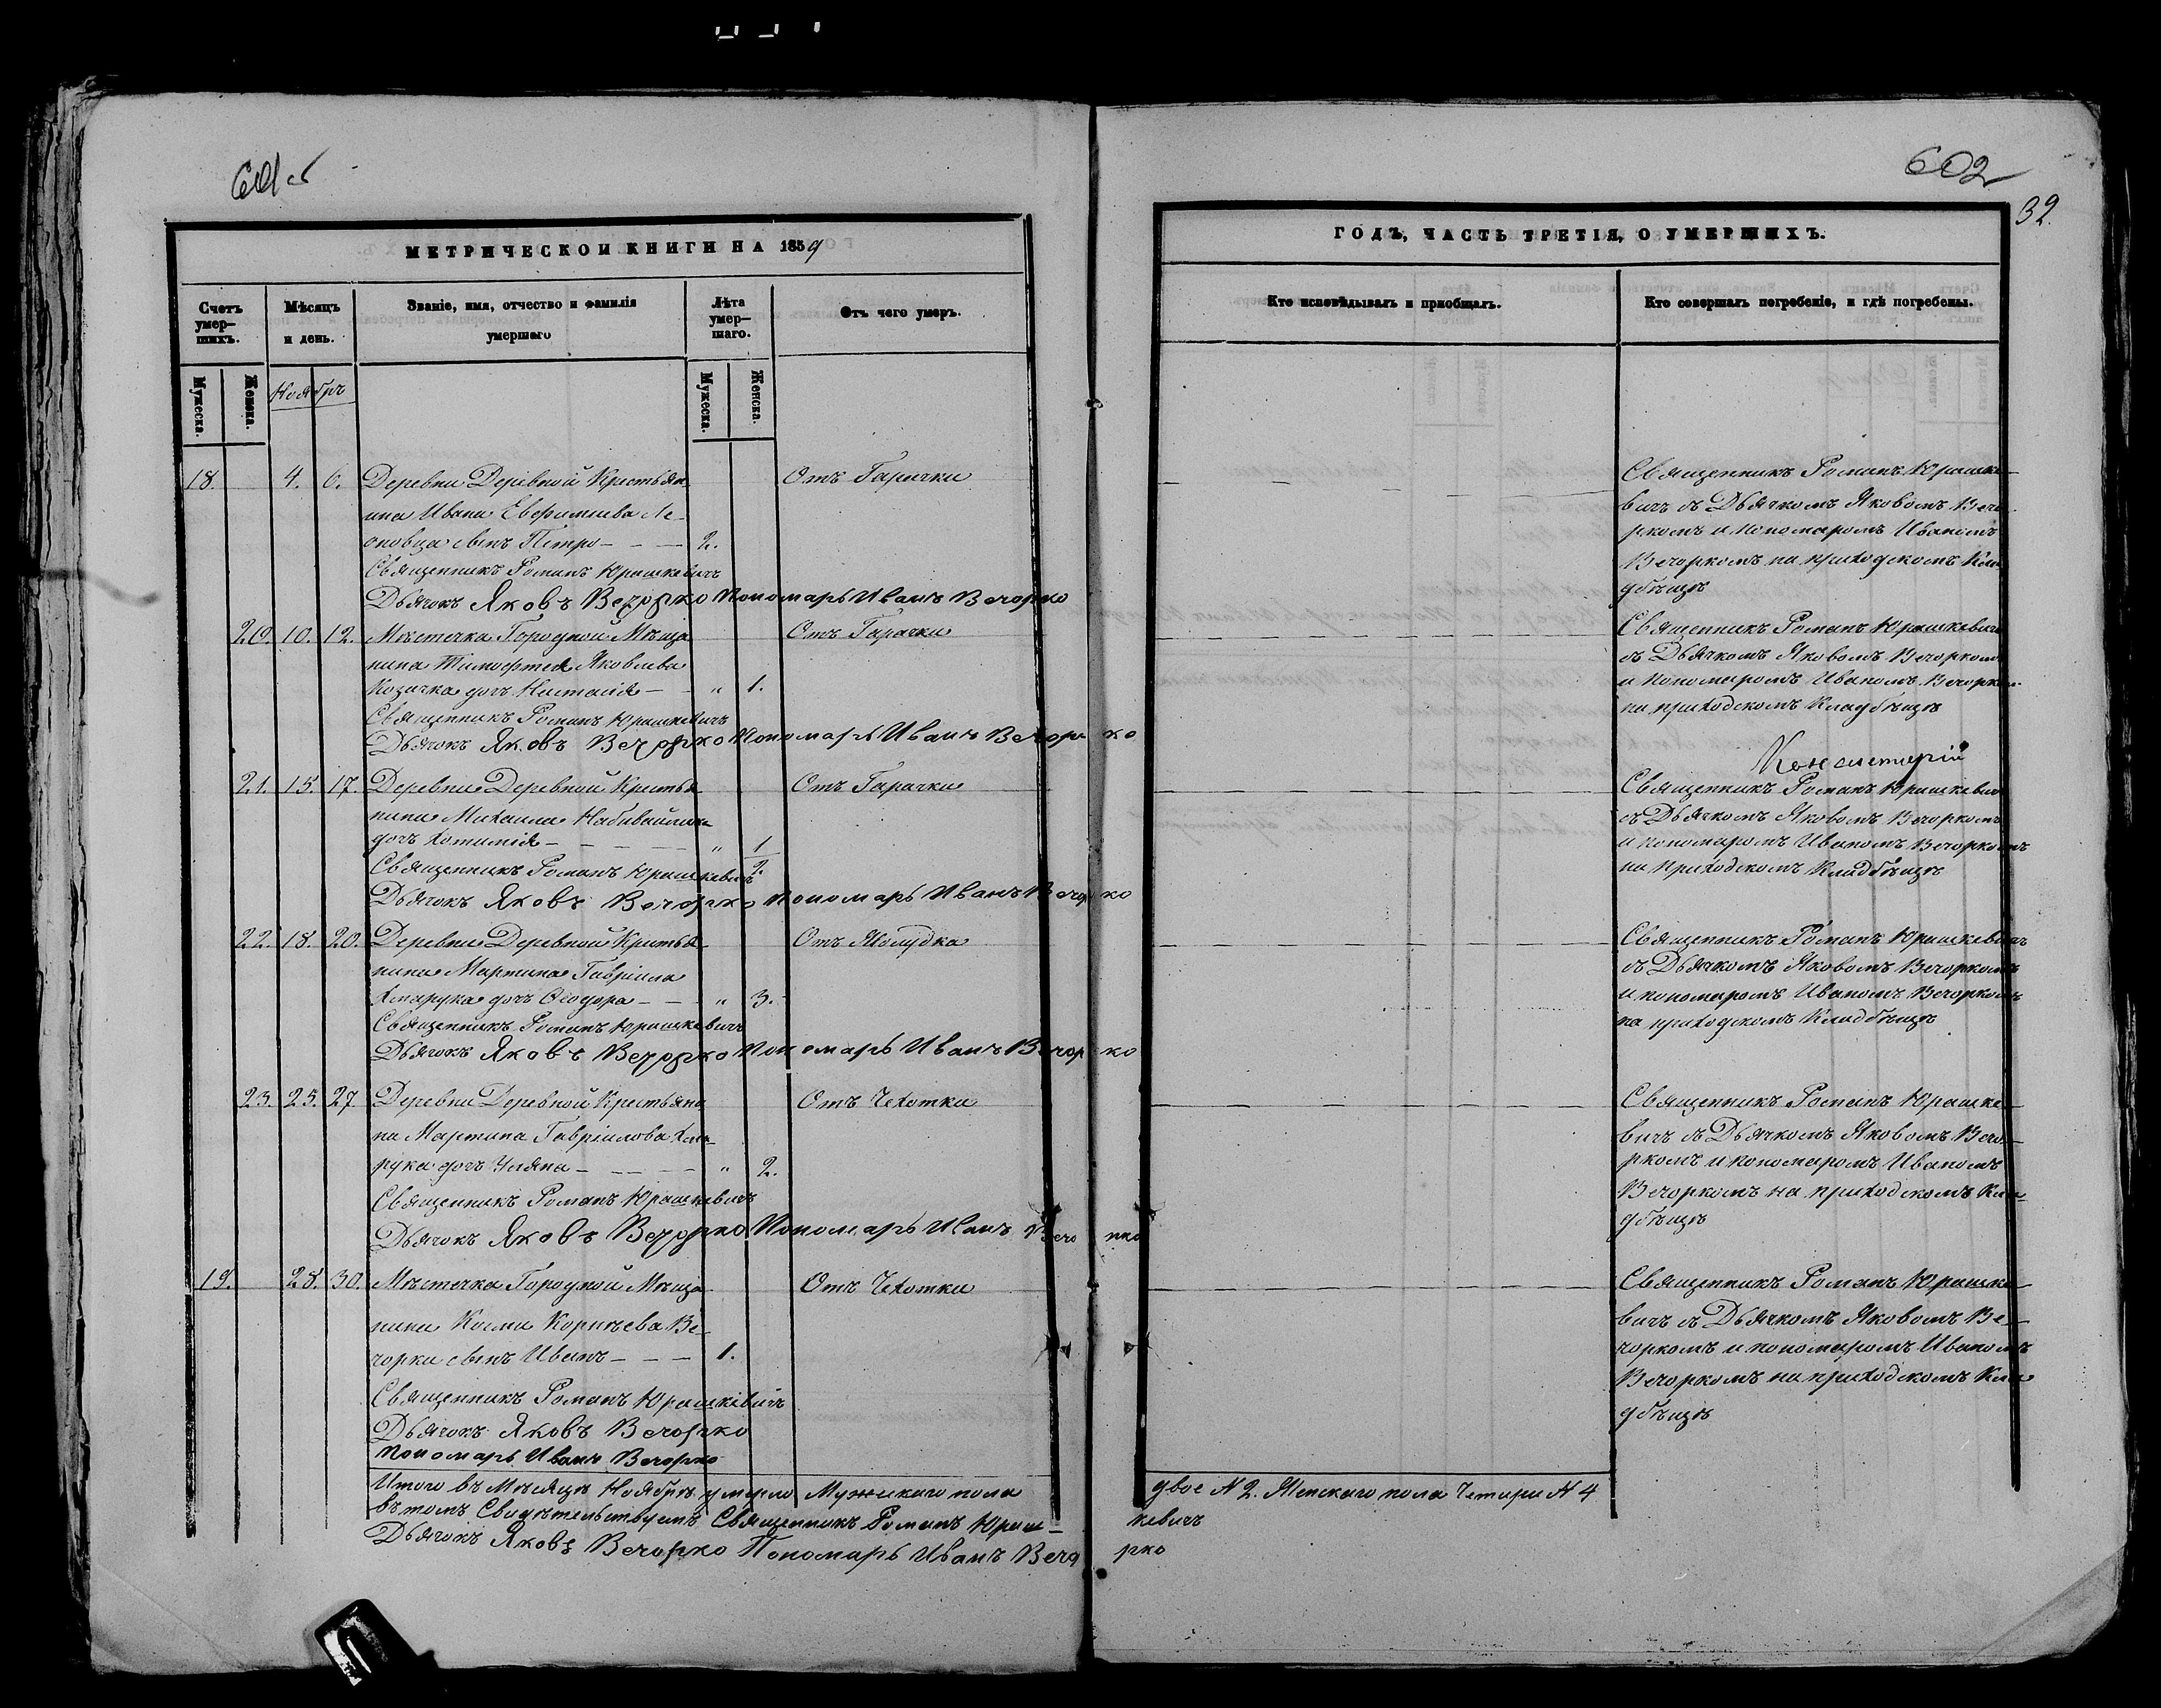 602
32.
МЕТРИЧЕСКОЙ КНИГИ НА 1859
Счетъ умер-
шихъ.
Мѣсяцъ
и день.
Званіе, имя, отчество и фамилія
умершаго
Лѣта
умер-
шаго.
Отъ чего умеръ.
Мужеска.
Женска.
Ноябрь
Мужеска.
Женска.
18. 4. 6. Деревни Деревной Крестьян
ина Ивана
сынъ Петро - - - 2.
Отъ Гарачки
Священникъ Романъ Юрашкевичъ
Дьячокъ Яковъ Вечорко Пономарь Иванъ Вечорко
20. 10. 12. Мѣстечка Городной Мѣща
нина Тимофтея Яковлева
Козачка дочъ Настасія - - " 1.
Отъ Гарачки
Священникъ Романъ Юрашкевичъ
Дьячокъ Яковъ Вечорко Пономарь Иванъ Вечорко
21. 15. 17. Деревни Деревной Крестья
нина Михаила
дочъ Хотимія - - - - " 1/2.
Отъ Гарачки
Священникъ Романъ Юрашкевичъ
Дьячокъ Яковъ Вечорко Пономарь Иванъ Вечорко
22. 18. 20. Деревни Деревной Крестья
нина Мартина Гавріила
Хмарука дочъ Ѳеодора - - - " 3.
Отъ Жолудка
Священникъ Романъ Юрашкевичъ
Дьячокъ Яковъ Вечорко Пономарь Иванъ Вечорко
23. 25. 27. Деревни Деревной Крестьяни
на Мартина Гавріилова Хма-
рука дочъ Уляна - - - - " 2.
Отъ Чехотки
Священникъ Романъ Юрашкевичъ
Дьячокъ Яковъ Вечорко Пономарь Иванъ Вечорко
19. 28. 30. Мѣстечка Городной Мѣща
нина Космы Корнѣева Ве-
чорки сынъ Иванъ - - - 1.
Отъ Чехотки
Священникъ Романъ Юрашкевичъ
Дьячокъ Яковъ Вечорко
Пономарь Иванъ Вечорко
Итого въ Мѣсяцѣ Ноябрѣ умерло Мужскаго пола двое N 2. Женскаго пола Четыри N 4
въ томъ Свидѣтельствуемъ Священникъ Романъ Юраш-кевичъ
Дьячокъ Яковъ Вечорко Пономарь Иванъ Вечорко
ГОДЪ, ЧАСТЬ ТРЕТІЯ, О УМЕРШИХЪ.
Кто исповѣдывалъ и пріобщалъ.
Кто совершалъ погребеніе, и гдѣ погребены.
Священникъ Романъ Юрашке-
вичъ съ Дьячкомъ Яковомъ Вечо
ркомъ и пономаромъ Иваномъ
Вечоркомъ на приходскомъ Кла
дбѣщѣ
Священникъ Романъ Юрашкевичъ
съ Дьячкомъ Яковомъ Вечоркомъ
и пономаромъ Иваномъ Вечорко
на приходскомъ Кладбѣщѣ
Консисторій
Священникъ Романъ Юрашкевич
съ Дьячкомъ Яковомъ Вечоркомъ
и пономаромъ Иваномъ Вечоркомъ
на приходскомъ Кладбѣщѣ
Священникъ Романъ Юрашкевичъ
съ Дьячкомъ Яковомъ Вечоркомъ
и пономаромъ Иваномъ Вечоркомъ
на приходскомъ Кладбѣщѣ
Священникъ Романъ Юрашке-
вичъ съ Дьячкомъ Яковомъ Вечо-
ркомъ и пономаромъ Иваномъ
Вечоркомъ на приходскомъ Кла-
дбѣщѣ
Священникъ Романъ Юрашке-
вичъ съ Дьячкомъ Яковомъ Ве-
чоркомъ и пономаромъ Иваномъ
Вечоркомъ на приходскомъ Кла
дбѣщѣ